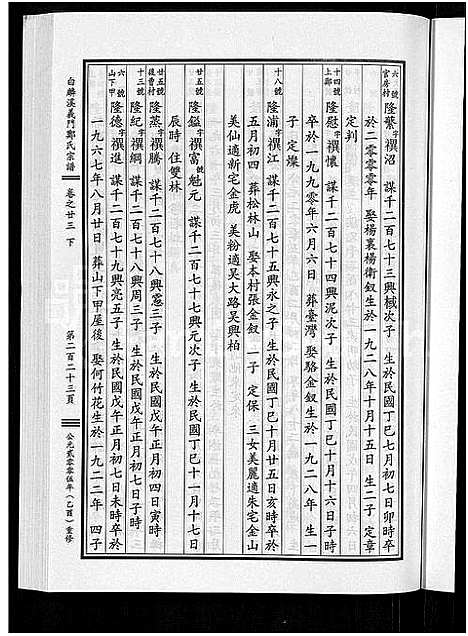 六號 官房村 隆繁 字禩沼 謀千二百七十三興棫次子 生於民國丁巳七月初七日卯時卒
於二零零零年 娶楊裏楊衛釵生於一九二八年十月十五日 生二子 定章
定判
十四號 上鄭 隆慰 字禩懷 謀千二百七十四興泥次子 生於民國丁巳十月十六日子時
卒於一九九零年六月六日 葬臺灣 娶駱金釵生於一九二八年 生一
子 定燦
十八號 隆浦 字禩江 謀千二百七十五興永之子 生於民國丁巳十月廿五日亥時卒於
五月初四 葬松林山 娶本村張金釵 一子 定保 三女美麗適朱宅金山
美仙適新宅金虎 美粉適吴大路吴興柏
廿五號 隆鎰 字禩富 號魁元 謀千二百七十七興元次子 生於民國丁巳十一月十七日
辰時 住雙林
廿五號 後曹村 隆蒸 字禩騰 謀千二百七十八興憲三子 生於民國戊午正月初四日寅時
十三號 隆紀 字禩綱 謀千二百七十八興周三子 生於民國戊午正月初七日子時
六號 山下甲 隆德 字禩進 謀千二百七十九興亮五子 生於民國戊午正月初七日未時卒於
一九六七年八月廿日 葬山下甲屋後 娶何竹花生於一九二二年 四子
白麟溪義門鄭氏宗譜 卷之廿三 下 第二百二十三頁 公元貳零零伍年(乙酉)重修